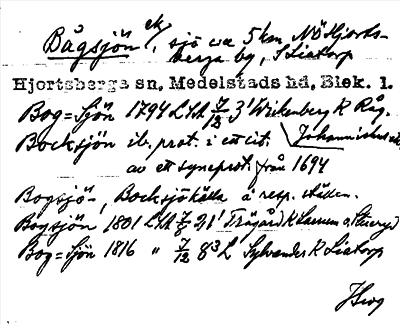 Bågsjön ek/, sjö ca 5 km NÖ Hjorts-
berga by, S Listorp
Hjortsberga sn, Medelstads hd, Blek. l.
Bog=Sjön 1794 LSA 7/12 3¹ Wikenberg K Råg.
Bocksjön ib. prot. i ett cit. Johannishus
av ett syneprot. från 1694
Bogsjö-, Bocksjökälla å resp. ställen.
Bogsjön 1801 LSA 21¹ Trägård K
Bog=Sjön 1816 " 7/12 83 L Sylvander K Listorp